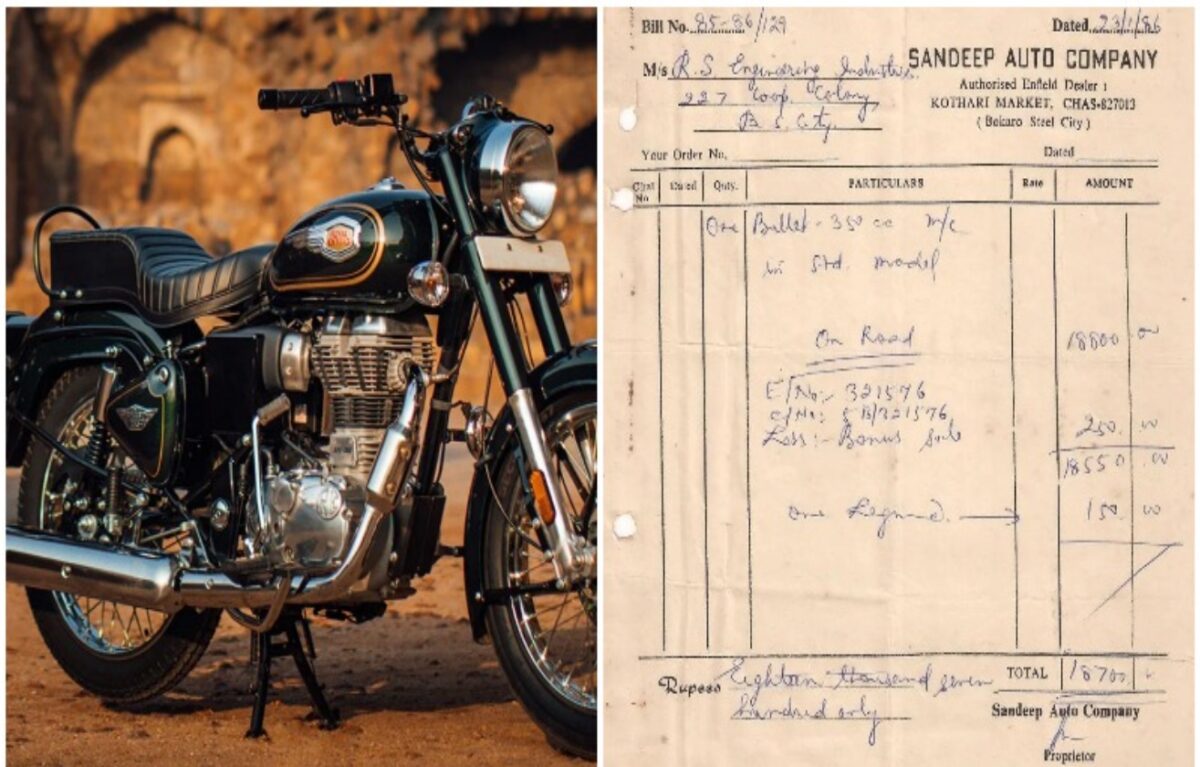 ROYAL ENFIELD
Bill No. 85-86/129 Dated 23/1/86
M/s R.S. Engineering Industries.
227 Coop. Colony
B.S. City.
SANDEEP AUTO COMPANY
Authorised Enfield Dealer :
KOTHARI MARKET, CHAS-827013
( Bokaro Steel City )
Your Order No. Dated
Chal No Dated Qnty. PARTICULARS Rate AMOUNT
One Bullet - 350 cc m/c
in Std. model
On Road 18800 00
E/No:- 321576
C/No: 5 B/321576
Less:- Bonus 250. 00
18550 .00
One Legguard. 150. 00
Rupees Eighteen thousand seven TOTAL 18700
hundred only
Sandeep Auto Company
Proprietor